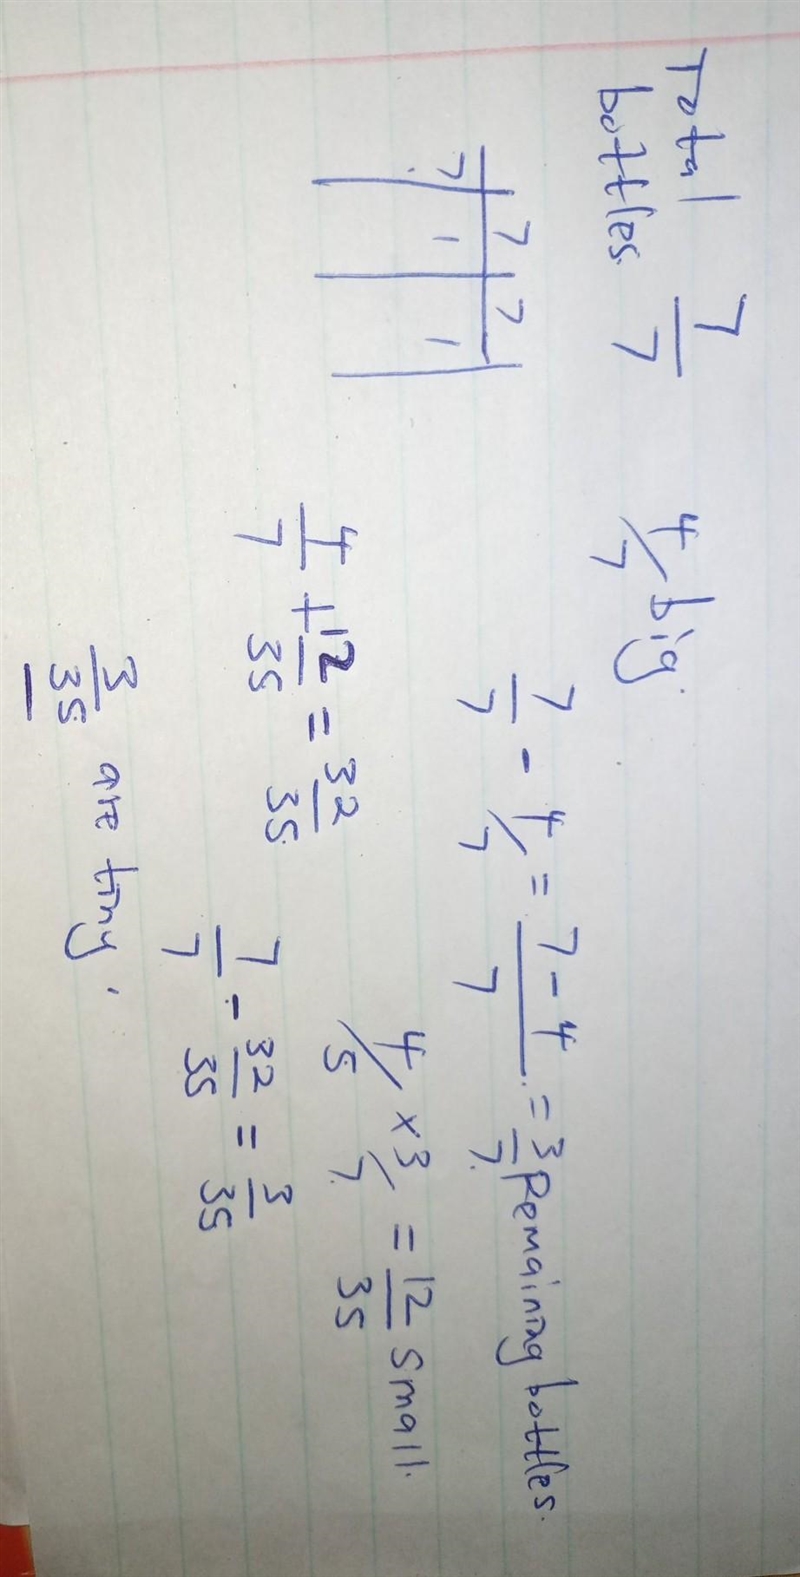 Total bottles 7/7
4/7 big.
7/7 - 4/7 = 7-4/7 = 3/7. Remaining bottles.
7 | 7 | 7
7 | 1 | 1
4/5 × 3/7 = 12/35 small.
4/7 + 12/35 = 32/35
7/7 - 32/35 = 3/35
3/35 are tiny.